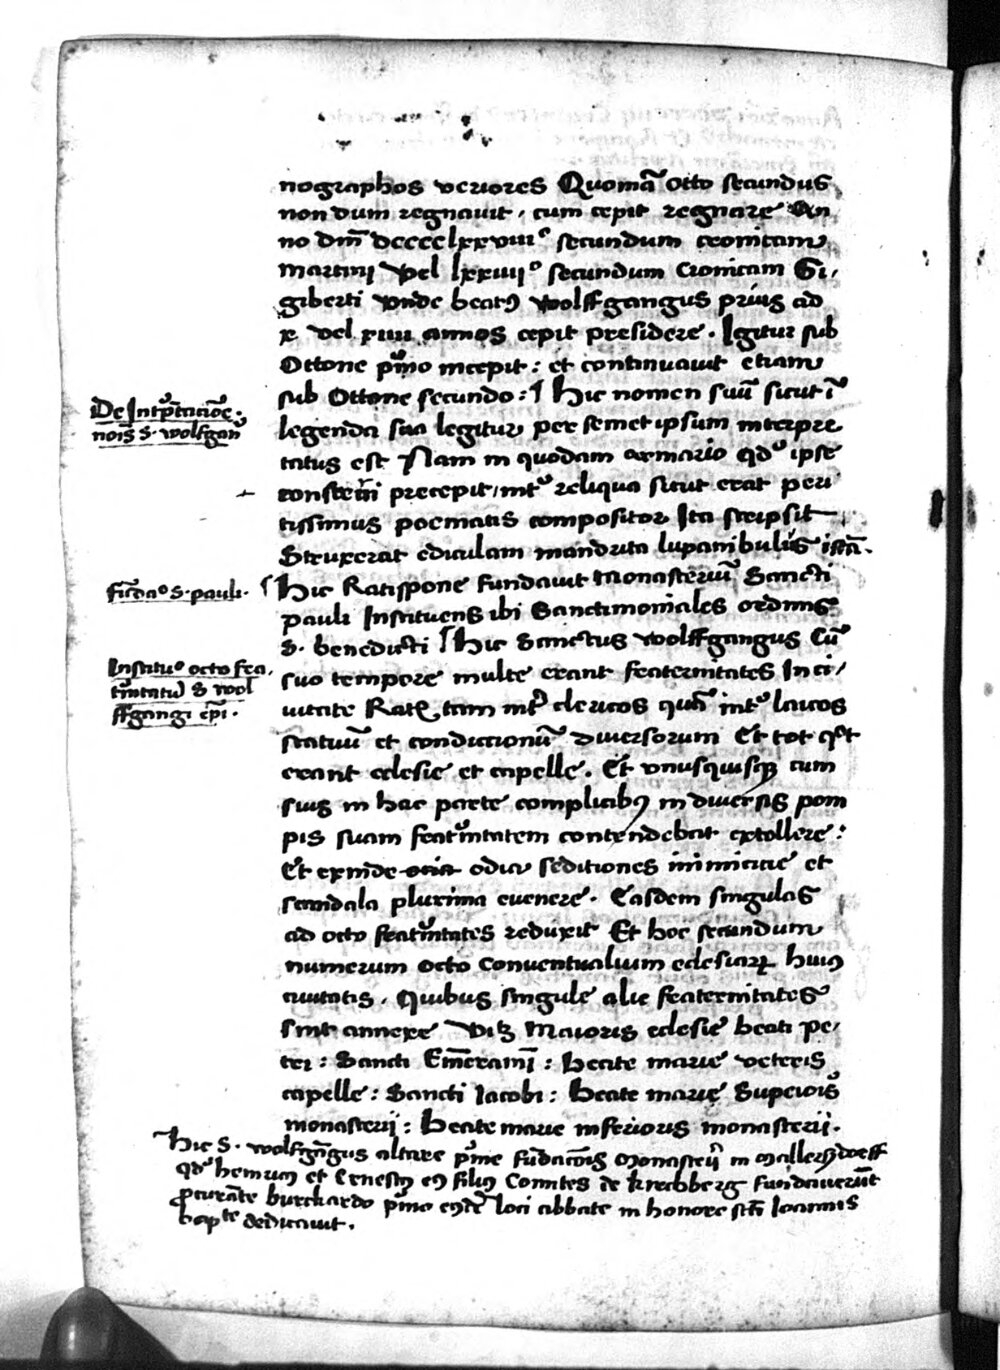 nographos veriores Quomā Otto secundus
non dum regnauit, cum cepit regnare An
no dm̄ dcccclxxviii° secundum cronicam
Martini Vel lxxiiii° secundum Cronicam Si,
giberti Vnde beatꝰ wolffgangus prius ad
x vel xiiii annos cepit presidere. Igitur sub
Ottone pͥmo incepit: et continuauit etiam
sub Ottone secundo: Hic nomen suū sicut ī
De Intp̄tac̄oe.
nois S. wolfgan̄
legenda sua legitur per semet ipsum interpre
tatus est Nam in quodam armario qd° ipse
precepit, int° reliqua sicut erat peri
tissimus poematis compositor Ita scripsit
Struxerat ediculam mandruta lupambulus istā.
Fūda° S. pauli.
Hic Ratispone fundauit monasteriū Sancti
pauli Instituens ibi Sanctimoniales ordinis
S. benedicti Hic Sanctus wolffgangus Cū
Institu° octo fra
t̄nitatū S wol
ffgangi ep̄i.
suo tempore multe erant fraternitates In ci,
uitate Ratꝭ tam int̄ clericos quā int° laicos
statuū et condictionū diuersorum Et tot qͦt
erant eclesie et capelle. Et vnusquisqꝫ cum
suis in hac parte complicibꝰ in diuersis pom
pis suam frat̄nitatem contendebat extollere:
Et exinde odia seditiones inimicicie et
scandala plurima euenere. Easdem singulas
ad octo frat̄nitates reduxit Et hoc secundum
numerum octo Conuentualium eclesiarꝝ huiꝰ
ciuitatis. Quibus singule alie fraternitates
sint annexe Vitꝫ Maioris eclesie beati pe,
tri: Sancti Em̄erami: Beate marie veteris
capelle: Sancti Iacobi: Beate marie Superioris
monasterij: Beate marie inferioris monasterij.
Hic S. wolfgāgus altare pͥme fūdac̄ois Monasterij in Mallersdorff
qd° heinricꝰ et Ernestꝰ eiꝰ filiꝰ Comites de kirchberg fundauerūt
ꝓcurāte burckardo pͥmo eiꝰdē loci abbate in honore sc̄ti Ioannis
bapte dedicauit.